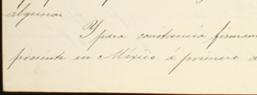 algunos.
Y para constancia firmamos
presente en México á primero d